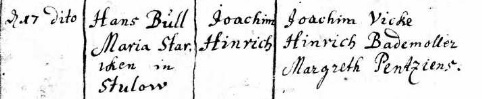 17 dito Hans Büll Joachim Joachim Vicke
Maria Star, Hinrich Hinrich Bademoller
icken in Margreth Pentziens.
Stulow